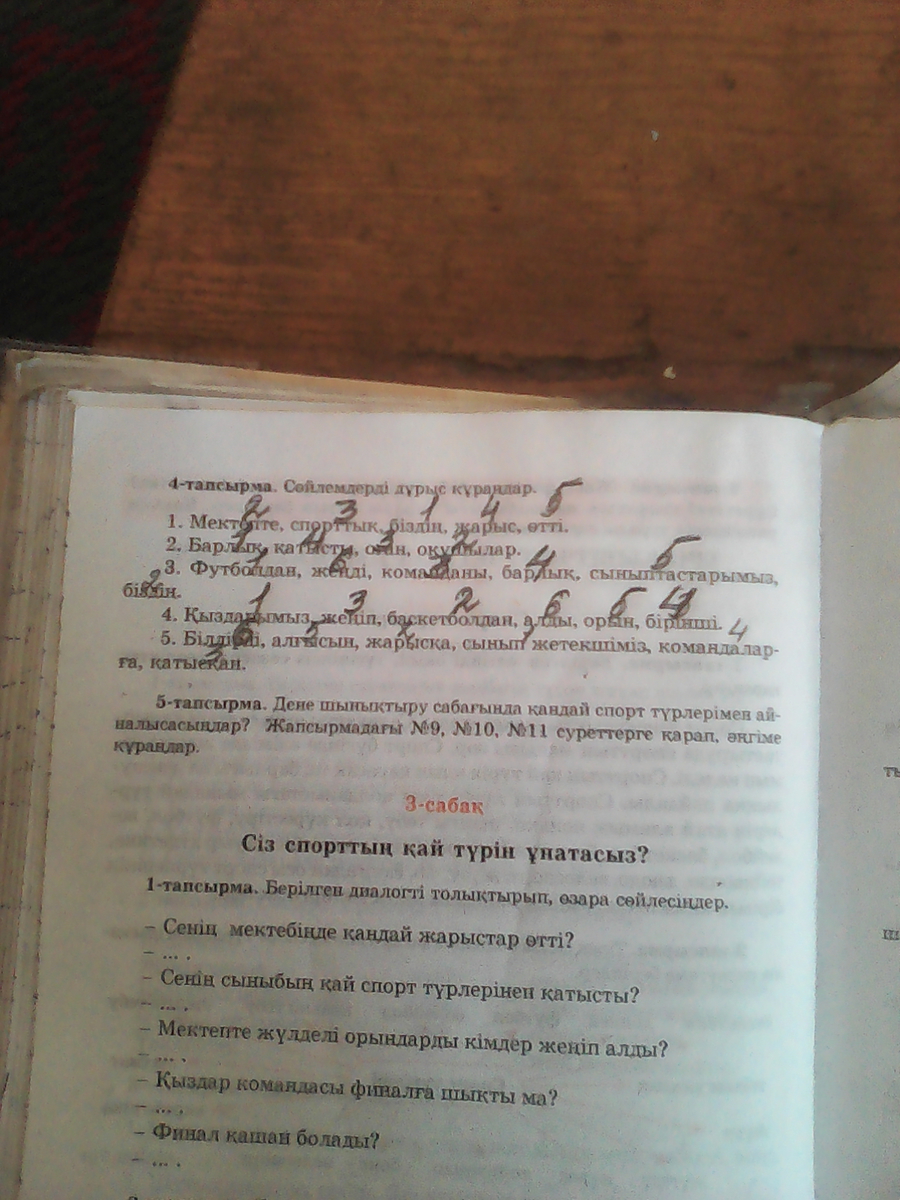 4-тапсырма. Сөйлемдерді дұрыс құраңдар.
2 3 1 4 5
1. Мектепте, спорттық, біздің, жарыс, өтті.
1 4 3 2
2. Барлық, қатысты, оған, оқушылар.
1 6 3 4 5
3. Футболдан, жеңді, команданы, барлық, сыныптастарымыз,
2
біздің.
1 3 2 6 5 4
4. Қыздарымыз, жеңіп, баскетболдан, алды, орын, бірінші.
6 5 2 1 4
5. Білдірді, алғысын, жарысқа, сынып жетекшіміз, командалар-
3
ға, қатысқан.
5-тапсырма. Дене шынықтыру сабағында қандай спорт түрлерімен ай-
налысасыңдар? Жапсырмадағы №9, №10, №11 суреттерге қарап, әңгіме
құраңдар.
3-сабақ
Сіз спорттың қай түрін ұнатасыз?
1-тапсырма. Берілген диалогті толықтырып, өзара сөйлесіңдер.
– Сенің мектебіңде қандай жарыстар өтті?
– ... .
– Сенің сыныбың қай спорт түрлерінен қатысты?
– ... .
– Мектепте жүлделі орындарды кімдер жеңіп алды?
– ... .
– Қыздар командасы финалға шықты ма?
– ... .
– Финал қашан болады?
– ... .